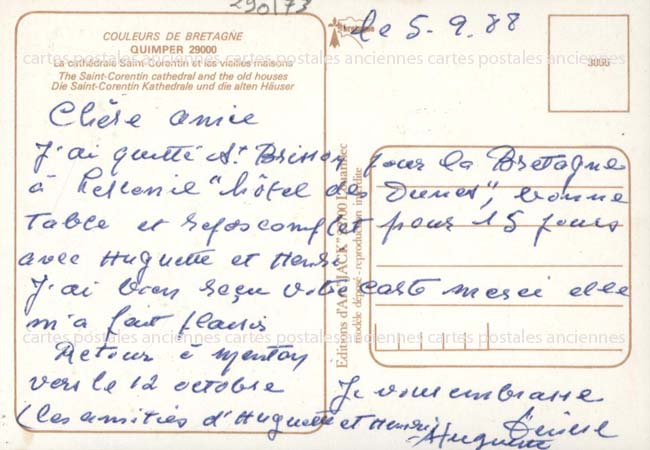 290/73
COULEURS DE BRETAGNE
QUIMPER 29000
La cathédrale Saint-Corentin et les vieilles maisons
The Saint-Corentin cathedral and the old houses
Die Saint-Corentin Kathedrale und die alten Häuser
le 5-9.88
3096
cartes postales anciennes cartes postales anciennes cartes postales anciennes
Chère amie
J'ai quitté St Brisson pour la Bretagne
à "hôtel des Dunes", bonne
Table et repos complet pour 15 jours
avec Huguette et Henri
J'ai bien reçu votre carte merci elle
m'a fait plaisir
cartes postales anciennes cartes postales anciennes cartes postales anciennes
Retour à Menton
vers le 12 octobre
Je vous embrasse
(les amitiés d'Huguette et Henri)
Huguette
Editions d'Art "JACK" Douarnenez
modèle déposé - reproduction interdite